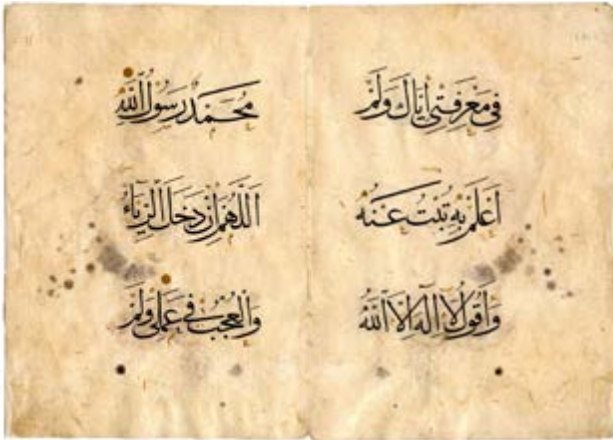 فِي مَعْرِفَتِي إِيَّاكَ وَلَمْ
اَعْلَمْ بِهِ تُبْتُ عَنْهُ
وَاَقُولُ لَا اِلٰهَ اِلَّا اللّٰهُ
مُحَمَّدٌ رَسُولُ اللّٰهِ
اَللّٰهُمَّ اِنْ دَخَلَ الرِّيَاءُ
وَالْعُجْبُ فِي عَمَلِي وَلَمْ